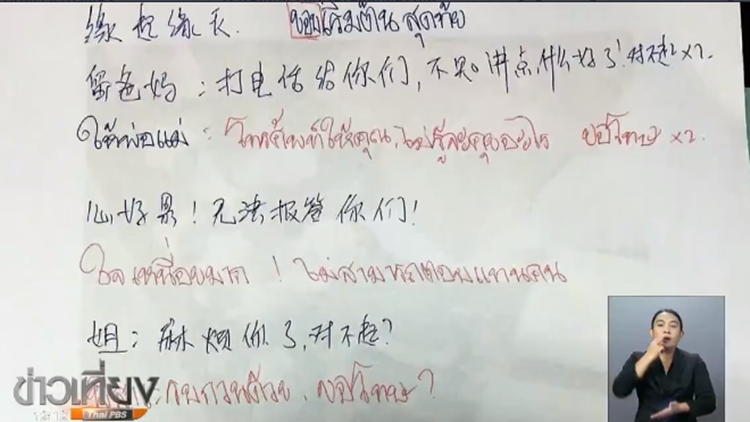 缘起缘灭. ของเริ่มต้น สุดท้าย
留爸妈：打电话给你们，不知讲点什么好了！对不起×2.
ให้พ่อแม่ : โทรศัพท์ให้คุณ, ไม่รู้จะคุยอะไร ขอโทษ ×2.
心好累！无法报答你们！
ใจเหนื่อยมาก ! ไม่สามารถตอบแทนคุณ
姐：麻烦你了，对不起？
รบกวนด้วย, ขอโทษ ?
ข่าวเที่ยง
Thai PBS